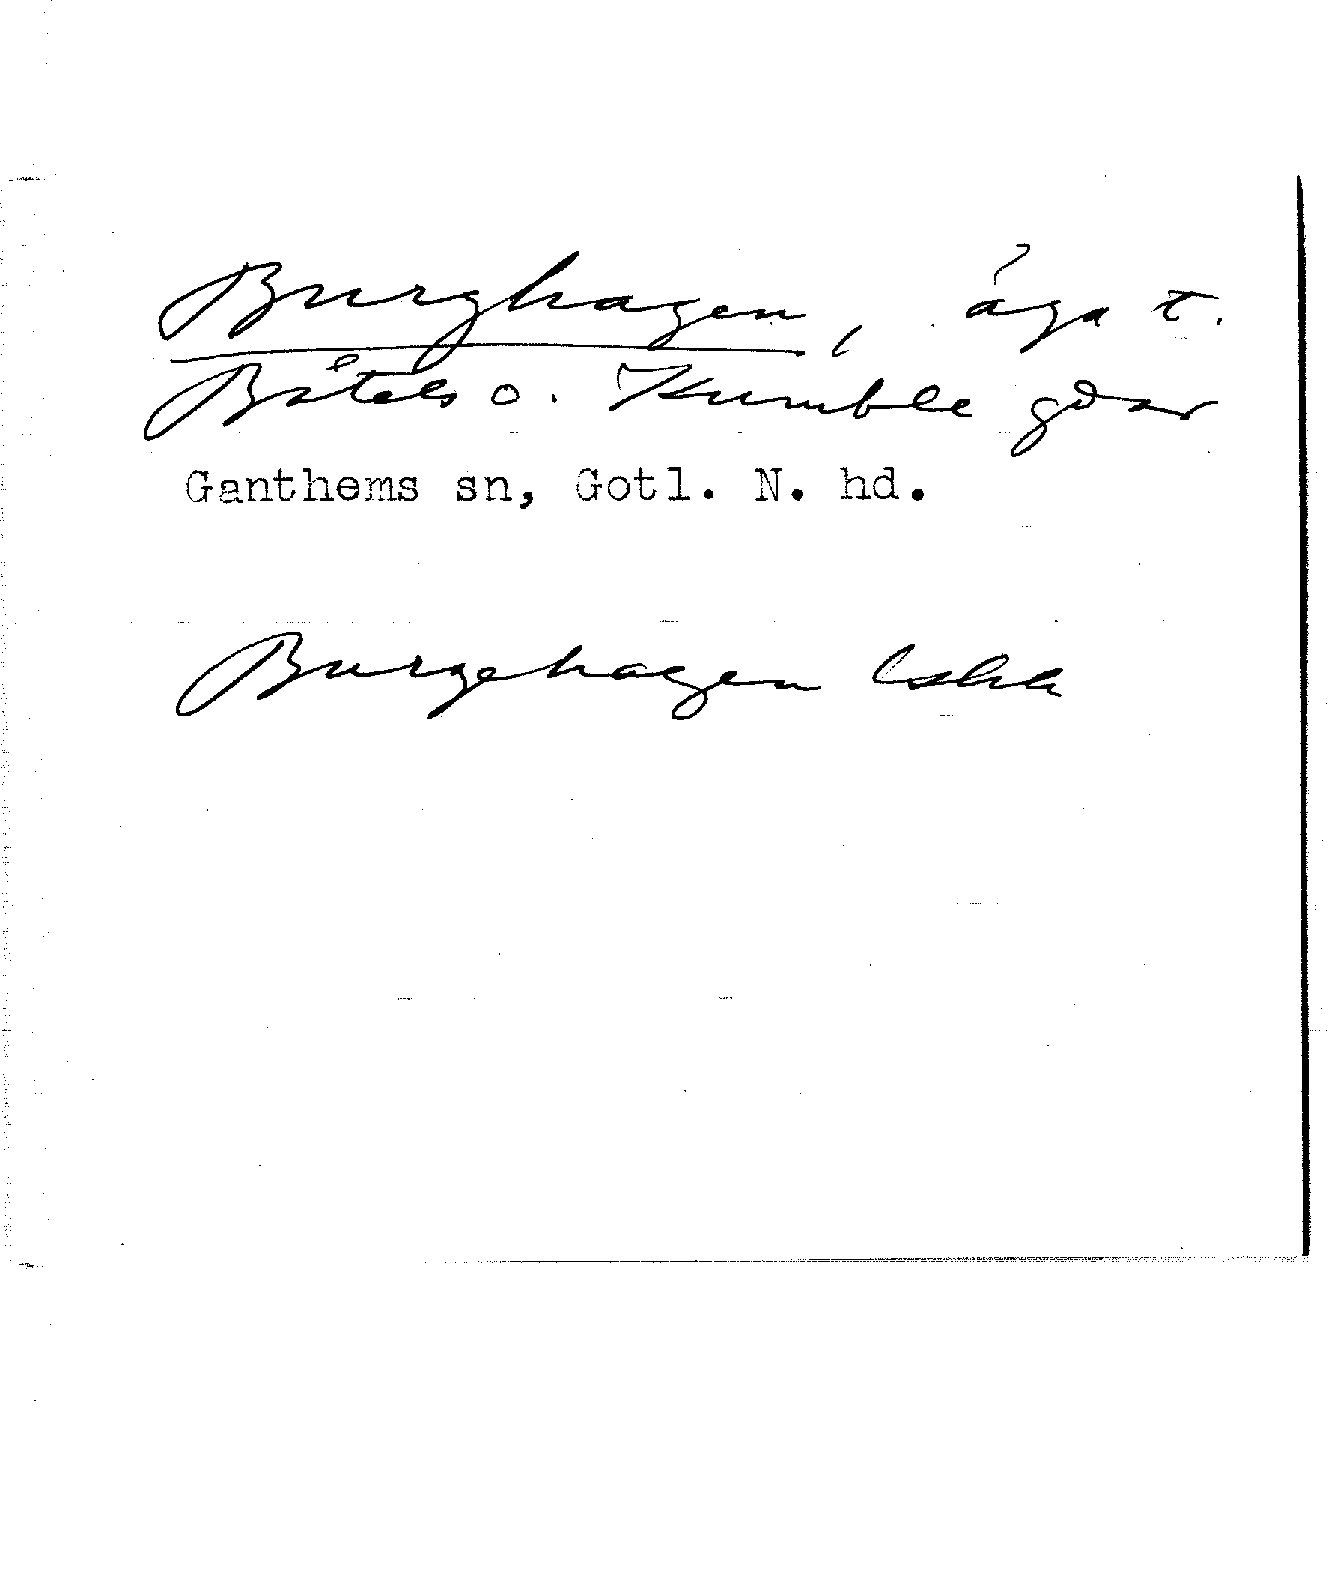 Burghagen, äga t.
Båtels o. Kumble gdar
Ganthems sn, Gotl. N. hd.
Burgehagen